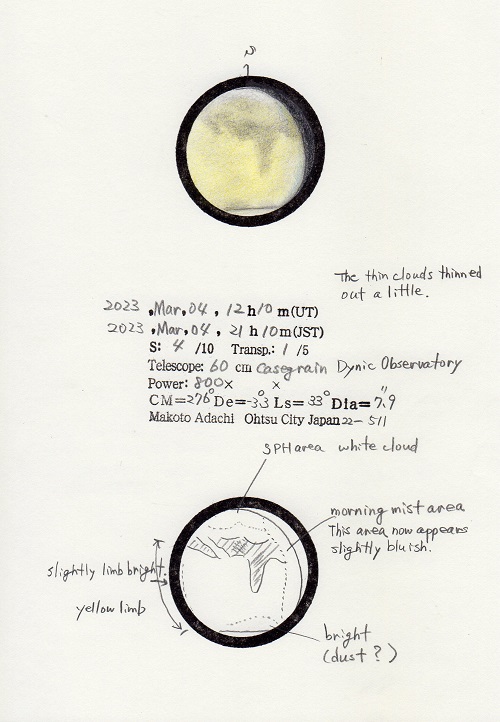 S
The thin clouds thinned
out a little.
2023 ,Mar,04 , 12 h 10 m(UT)
2023 ,Mar,04 , 21 h 10 m(JST)
S: 4 /10 Transp.: 1 /5
Telescope: 60 cm Casegrain Dynic Observatory
Power: 800× ×
CM=276° De=-3.3° Ls= 33° Dia= 7.9"
Makoto Adachi Ohtsu City Japan 22-511
SPH area white cloud
morning mist area
This area now appears
slightly bluish.
slightly limb bright.
yellow limb
bright
(dust?)